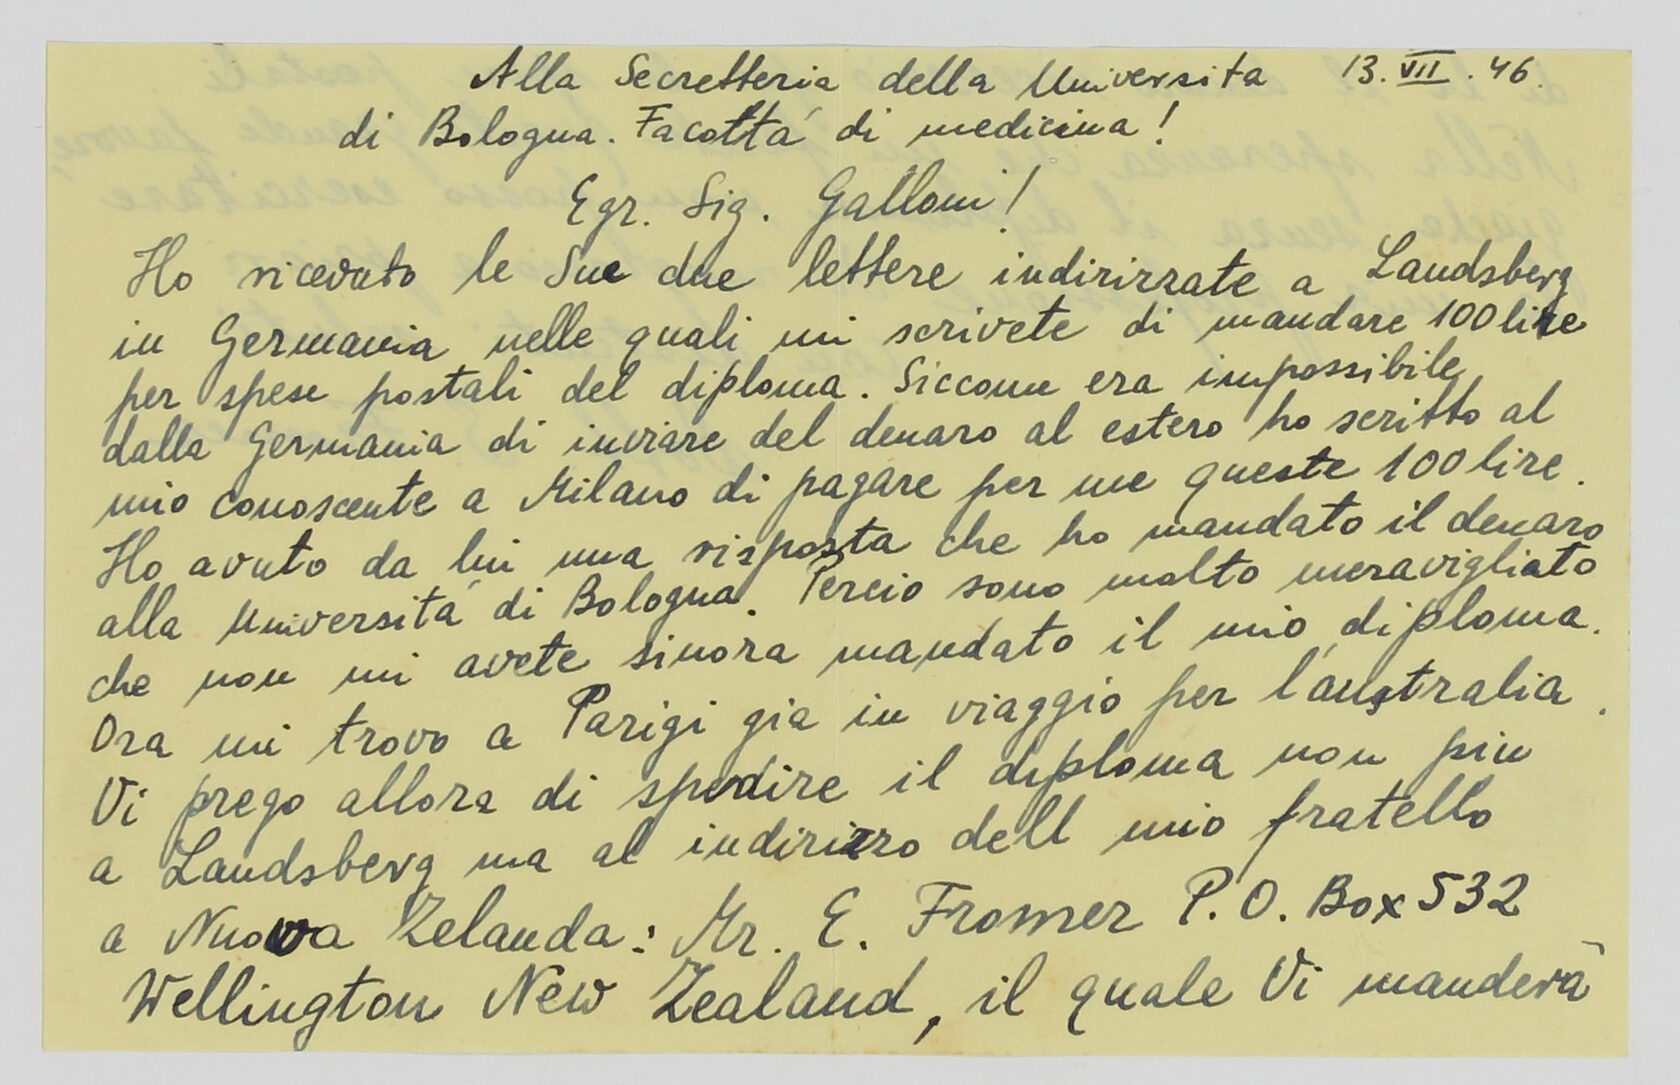 Alla Secretteria della Universita 13. VII. 46.
di Bologna. Facottá di medicina!
Egr. Sig. Galloni!
Ho ricevuto le Sue due lettere indirizzate a Landsberg
in Germania nelle quali mi scrivete di mandare 100 lire
per spese postali del diploma. Siccome era impossibile
dalla Germania di inviare del denaro al estero ho scritto al
mio conoscente a Milano di pagare per me queste 100 lire.
Ho avuto da lui una risposta che ho mandato il denaro
alla Universitá di Bologna. Percio sono molto meravigliato
che non mi avete sinora mandato il mio diploma.
Ora mi trovo a Parigi gia in viaggio per l'australia.
Vi prego allora di spedire il diploma non piu
a Landsberg ma al indirizzo dell mio fratello
a Nuova Zelanda: Mr. E. Fromer P.O. Box 532
Wellington New Zealand, il quale Vi manderà